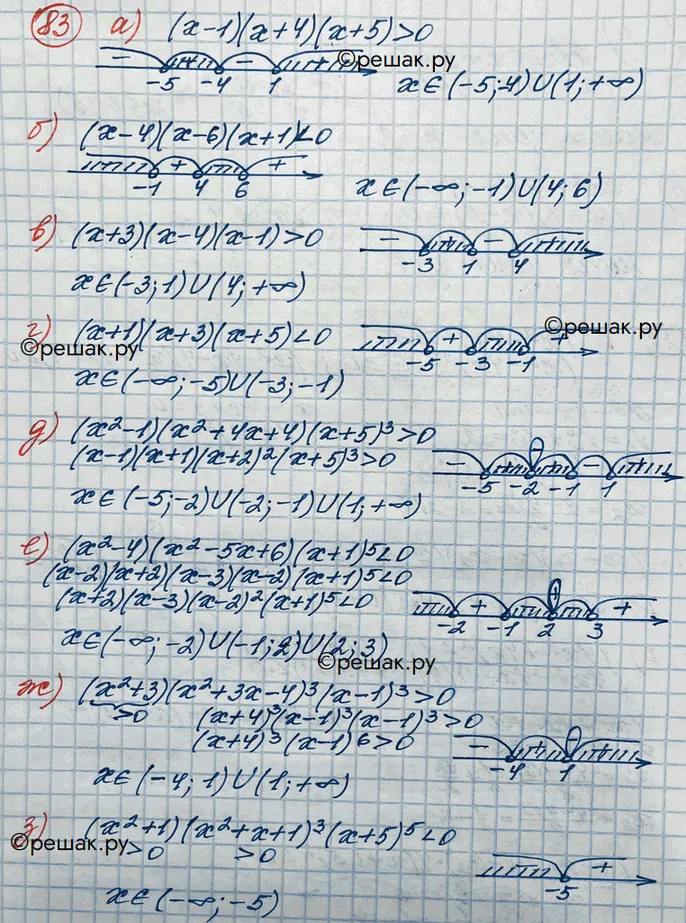 83 а) (x-1)(x+4)(x+5)>0
©решак.ру
- + - +
-5 -4 1 x∈(-5;-4)∪(1;+∞)
б) (x-4)(x-6)(x+1)<0
+ +
-1 4 6 x∈(-∞;-1)∪(4;6)
в) (x+3)(x-4)(x-1)>0
- + - +
-3 1 4
x∈(-3;1)∪(4;+∞)
г) (x+1)(x+3)(x+5)<0
©решак.ру
©решак.ру
+ +
-5 -3 -1
x∈(-∞;-5)∪(-3;-1)
д) (x²-1)(x²+4x+4)(x+5)³>0
(x-1)(x+1)(x+2)²(x+5)³>0
- - +
-5 -2 -1 1
x∈(-5;-2)∪(-2;-1)∪(1;+∞)
е) (x²-4)(x²-5x+6)(x+1)⁵<0
(x-2)(x+2)(x-3)(x-2)(x+1)⁵<0
(x+2)(x-3)(x-2)²(x+1)⁵<0
+ + +
-2 -1 2 3
x∈(-∞;-2)∪(-1;2)∪(2;3)
©решак.ру
ж) (x²+3)(x²+3x-4)³(x-1)³>0
>0 (x+4)³(x-1)³(x-1)³>0
(x+4)³(x-1)⁶>0
- + - +
-4 1
x∈(-4;1)∪(1;+∞)
з) (x²+1)(x²+x+1)³(x+5)⁵<0
©решак.ру
>0 >0
+
-5
x∈(-∞;-5)